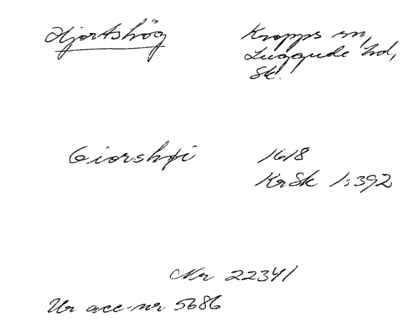 Hjortshög
Kropps sn,
Luggude hd,
Sk.
Giorshøi
1618
KrSk 1:392
Nr 22341
Ur acc-nr 5686